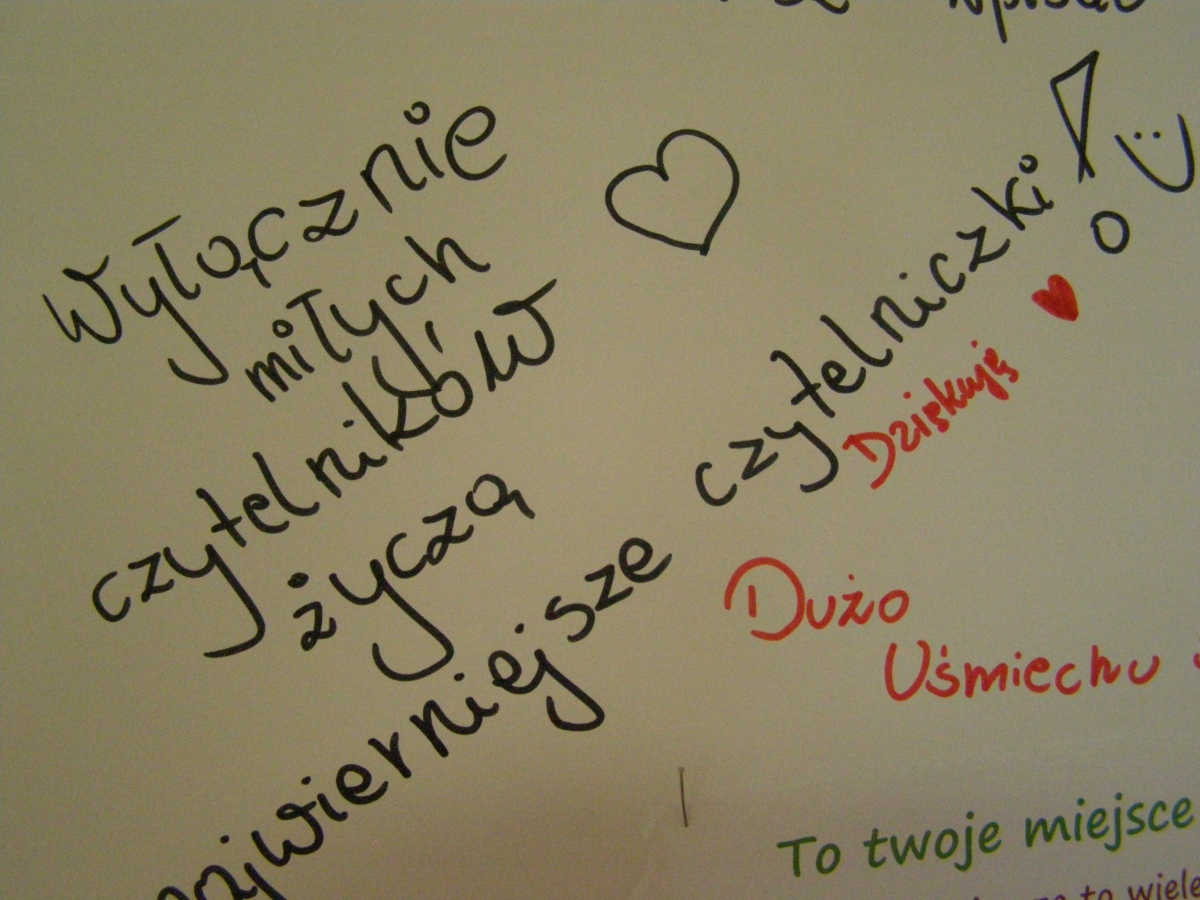 Wyłącznie
miłych
czytelników
życzą
najwierniejsze
czytelniczki! :)
Dziękuję ♥
Dużo
Uśmiechu
To twoje miejsce
to wiele